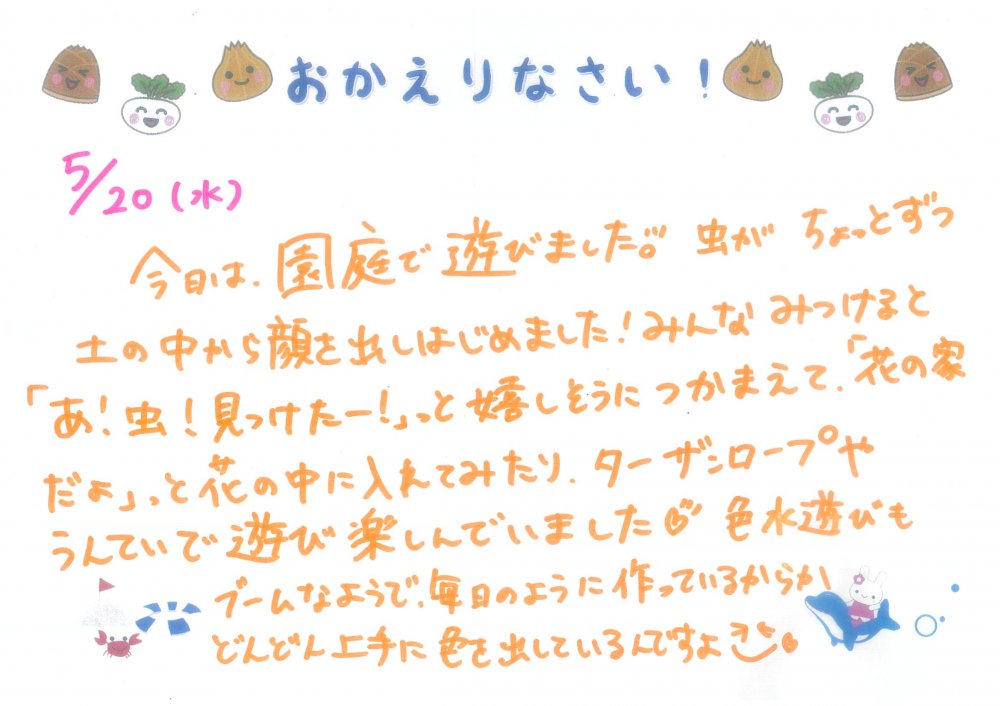 おかえりなさい!
5/20(水)
今日は、園庭で遊びました。虫がちょっとずつ
土の中から顔を出しはじめました!みんなみつけると
「あ!虫!見つけたー!」っと嬉しそうにつかまえて、「花の家
だよ」っと花の中に入れてみたり、ターザンロープや
うんていで遊び楽しんでいました♡色水遊びも
ブームなようで、毎日のように作っているからか
どんどん上手に色を出しているんですよ